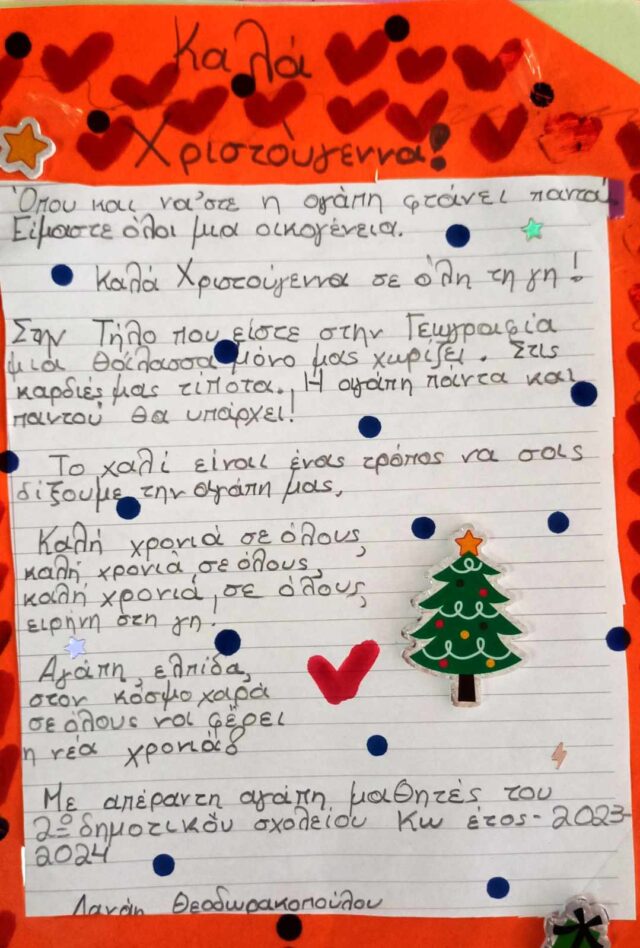 Καλά
Χριστούγεννα!
Όπου και να'στε η αγάπη φτάνει παντα
Είμαστε όλοι μια οικογένεια.
Καλά Χριστούγεννα σε όλη τη γη!
Στην Τήλο που είστε στην Γεωγραφία
μια θάλασσα μόνο μας χωρίζει. Στις
καρδιές μας τίποτα. Η αγάπη πάντα και
παντού θα υπάρχει!
Το χαλί είναι ένας τρόπος να σας
δίξουμε την αγάπη μας,
Καλή χρονιά σε όλους,
καλή χρονιά σε όλους,
καλή χρονιά, σε όλους,
ειρήνη στη γη.
Αγάπη, ελπίδα,
στον κόσμο χαρά
σε όλους να φέρει
η νέα χρονιά
Με απέραντη αγάπη, μαθητές του
2ο δημοτικού σχολείου Κω έτος-2023-
2024
Δανάη Θεοδωρακοπούλου